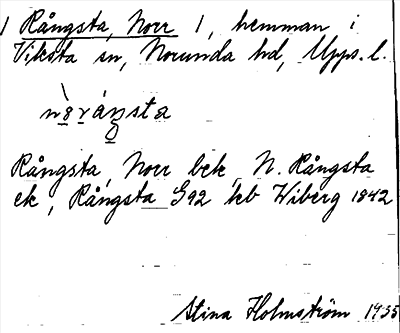 1 Rångsta, Norr 1, hemman i
Viksta sn, Norunda hd, Upps. l.
Rångsta, Norr bek, N. Rångsta
ek, Rångsta G92 kb Wiberg 1842
Stina Holmström 1935